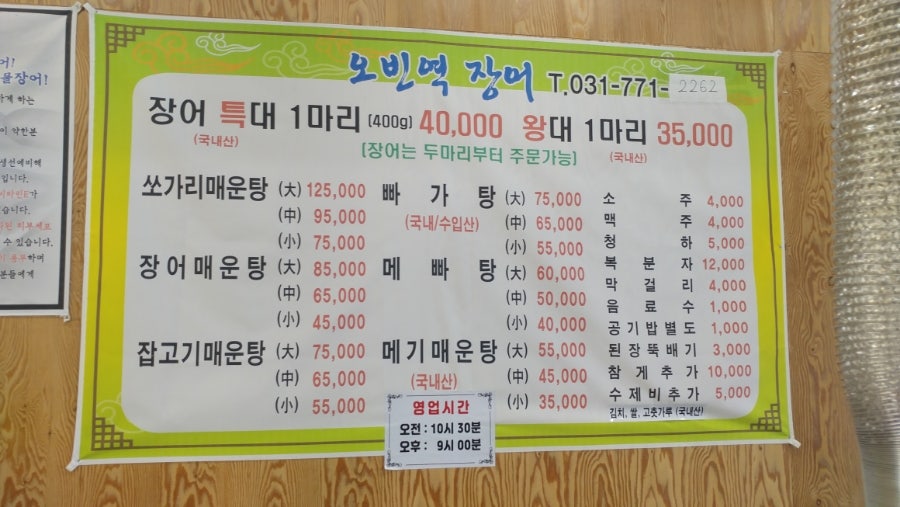 어!
물장어!
하게 하는
이 약한분
생선에비해
입니다.
비타민E가
습니다.
수 있습니다.
하며
분들에게
오빈역 장어 T.031-771-2262
장어 특대 1마리 (400g) 40,000 왕대 1마리 35,000
(국내산) (국내산)
(장어는 두마리부터 주문가능)
쏘가리매운탕 (大) 125,000
(中) 95,000
(小) 75,000
장어매운탕 (大) 85,000
(中) 65,000
(小) 45,000
잡고기매운탕 (大) 75,000
(中) 65,000
(小) 55,000
빠가탕 (大) 75,000
(국내/수입산) (中) 65,000
(小) 55,000
메빠탕 (大) 60,000
(中) 50,000
(小) 40,000
메기매운탕 (大) 55,000
(국내산) (中) 45,000
(小) 35,000
소주 4,000
맥주 4,000
청하 5,000
복분자 12,000
막걸리 4,000
음료수 1,000
공기밥별도 1,000
된장뚝배기 3,000
참게추가 10,000
수제비추가 5,000
김치, 쌀, 고춧가루 (국내산)
영업시간
오전 : 10시 30분
오후 : 9시 00분